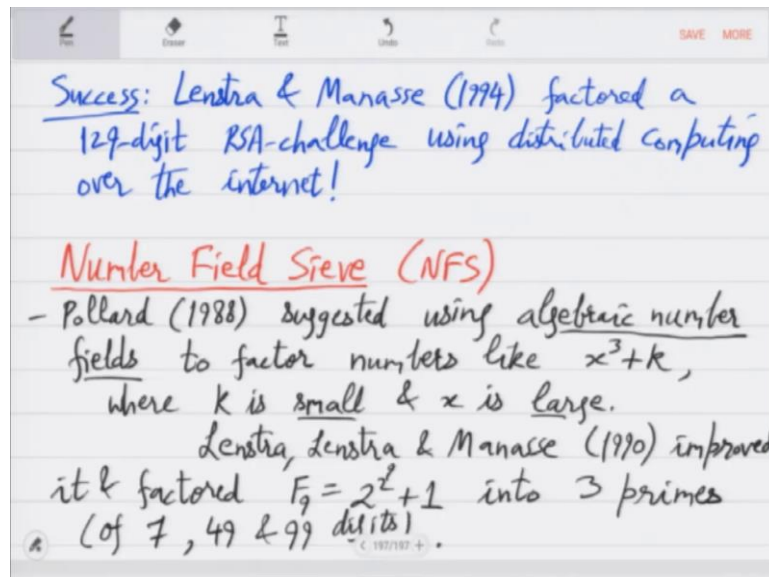 Pen Eraser Text Undo Redo SAVE MORE
Success: Lenstra & Manasse (1994) factored a
129-digit RSA-challenge using distributed computing
over the internet!
Number Field Sieve (NFS)
- Pollard (1988) suggested using algebraic number
fields to factor numbers like x³+k,
where k is small & x is large.
Lenstra, Lenstra & Manasse (1990) improved
it & factored F₉ = 2^2^9+1 into 3 primes
(of 7, 49 & 99 digits).
< 197/197 +